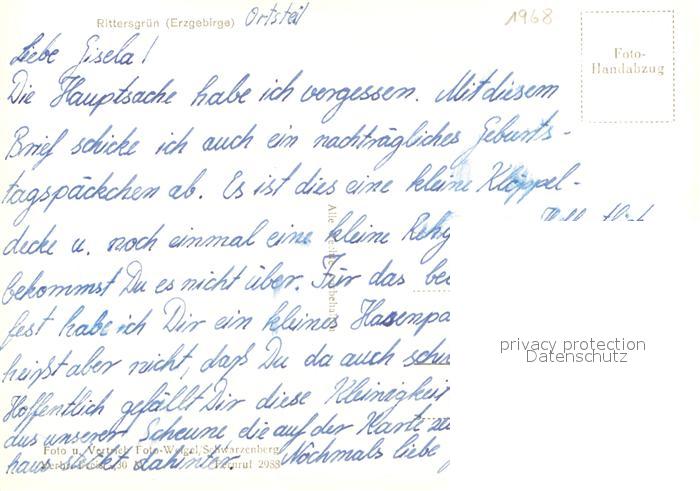 Rittersgrün (Erzgebirge) Ortsteil
1968
Foto-
Handabzug
Liebe Gisela!
Die Hauptsache habe ich vergessen. Mit diesem
Brief schicke ich auch ein nachträgliches Geburts-
tagspäckchen ab. Es ist dies eine kleine Klöppel-
decke u. noch einmal eine kleine
bekommst Du es nicht über. Für das
fest habe ich Dir ein kleines
heißt aber nicht, daß Du da auch
Hoffentlich gefällt Dir diese Kleinigkeit
das unserer Scheune die auf der Karte
haus steckt dahinter. Nochmals liebe
Foto u. Vertrieb Foto-Weigel, Schwarzenberg
Fernruf 2988
privacy protection
Datenschutz